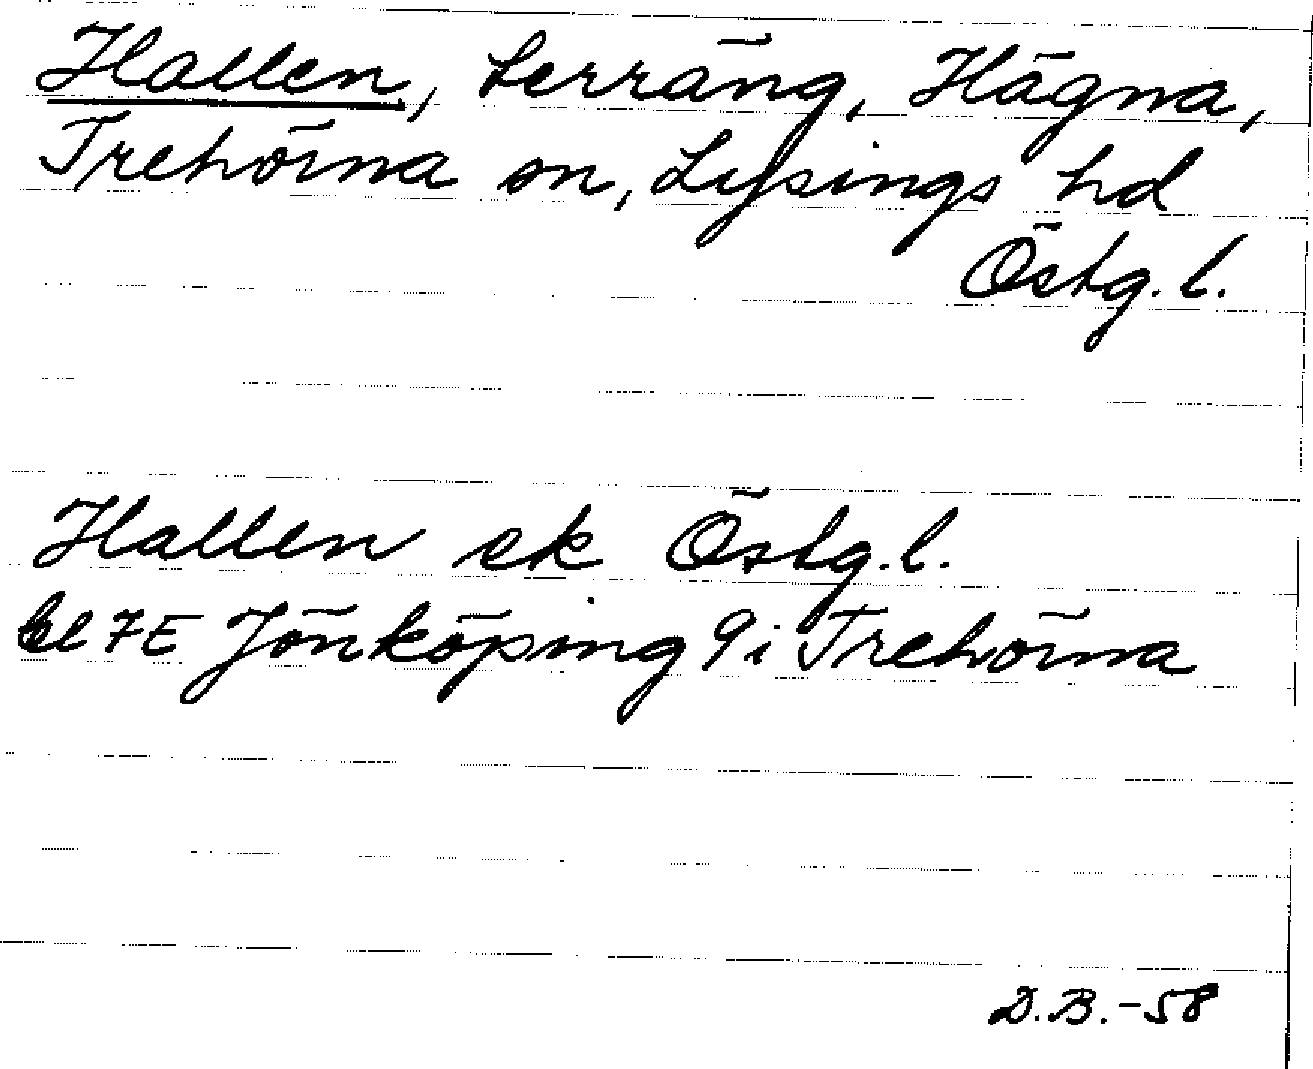 Hallen, terräng, Hägna,
Trehörna sn, Lysings hd
Östg. l.
Hallen ek Östg. l.
bl 7E Jönköping 9i Trehörna
D.B.-58